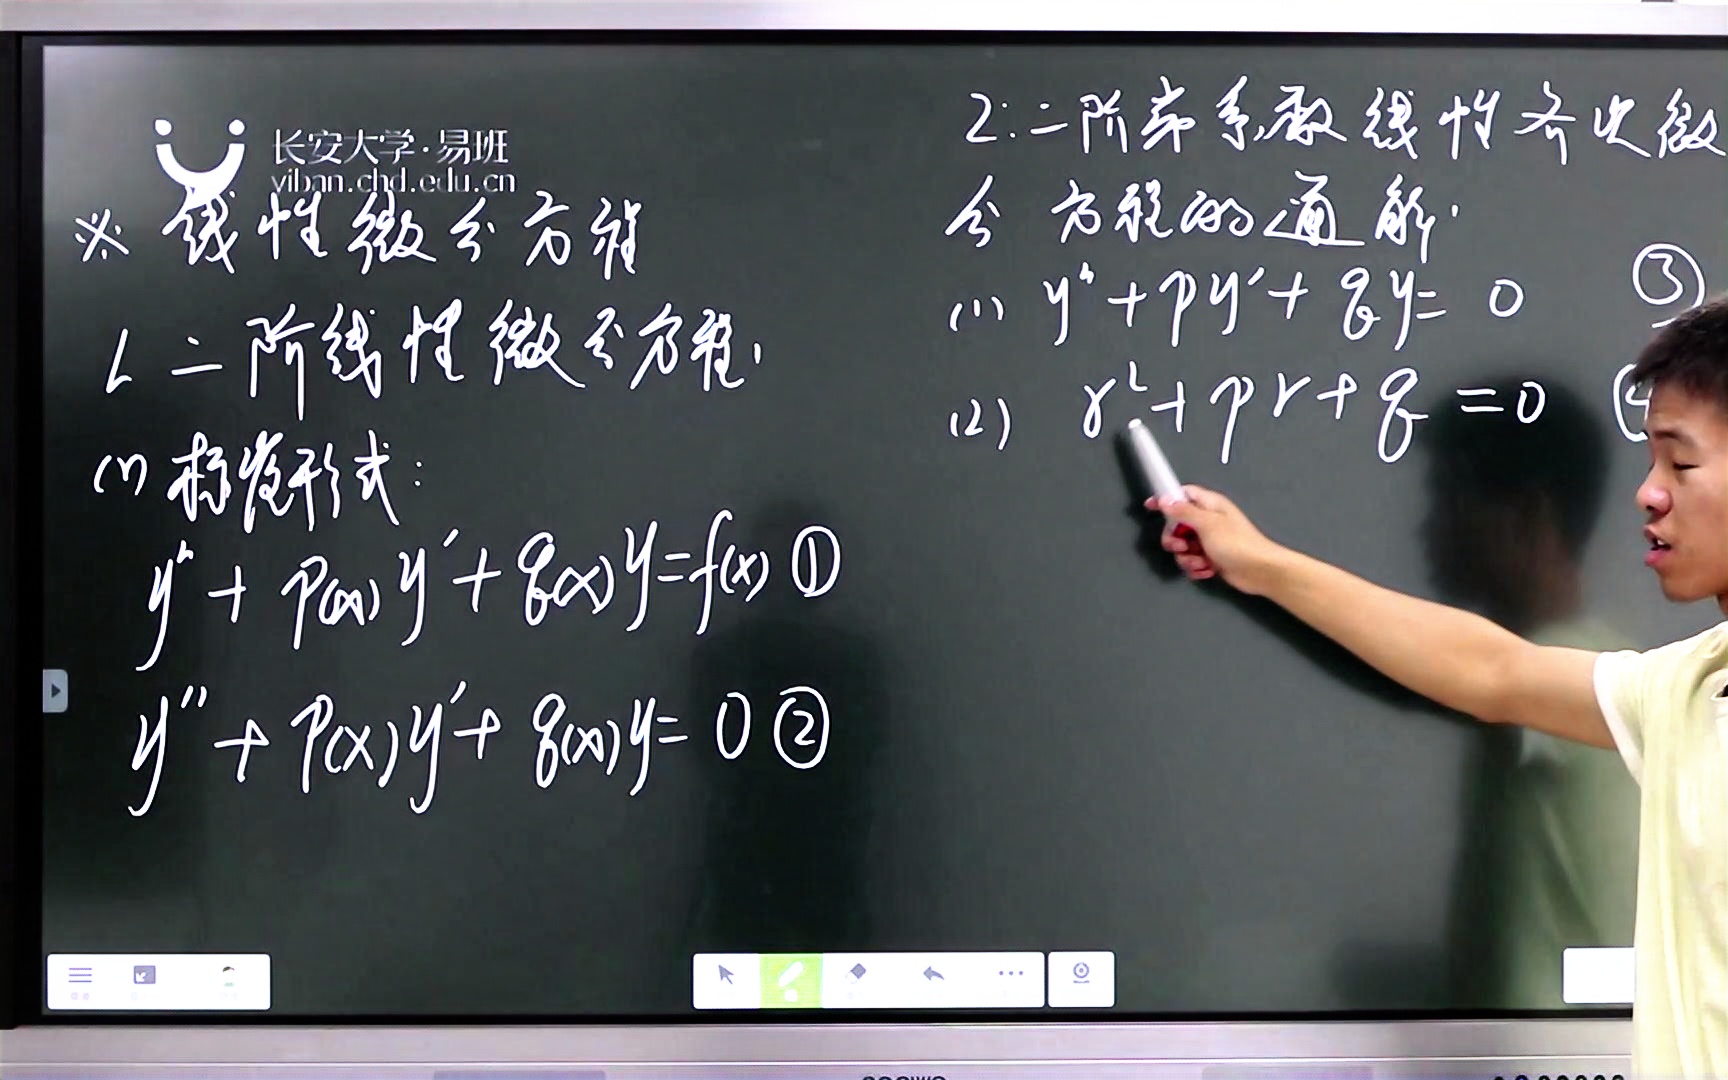 长安大学·易班
yiban.chd.edu.cn
※ 线性微分方程
1. 二阶线性微分方程.
(1) 标准形式:
y'' + p(x)y' + q(x)y=f(x) ①
y'' + p(x)y' + q(x)y= 0 ②
2: 二阶常系数线性齐次微
分方程的通解.
(1) y'' + py' + qy= 0 ③
(2) r² + pr + q = 0